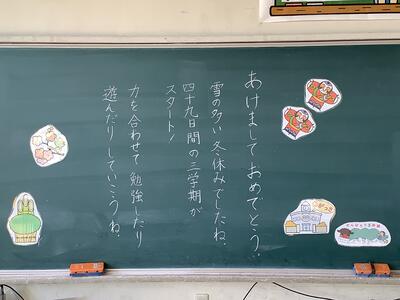 あけましておめでとう!!
雪の多い冬休みでしたね。
四十九日間の三学期が
スタート!
力を合わせて勉強したり
遊んだりしていこうね。